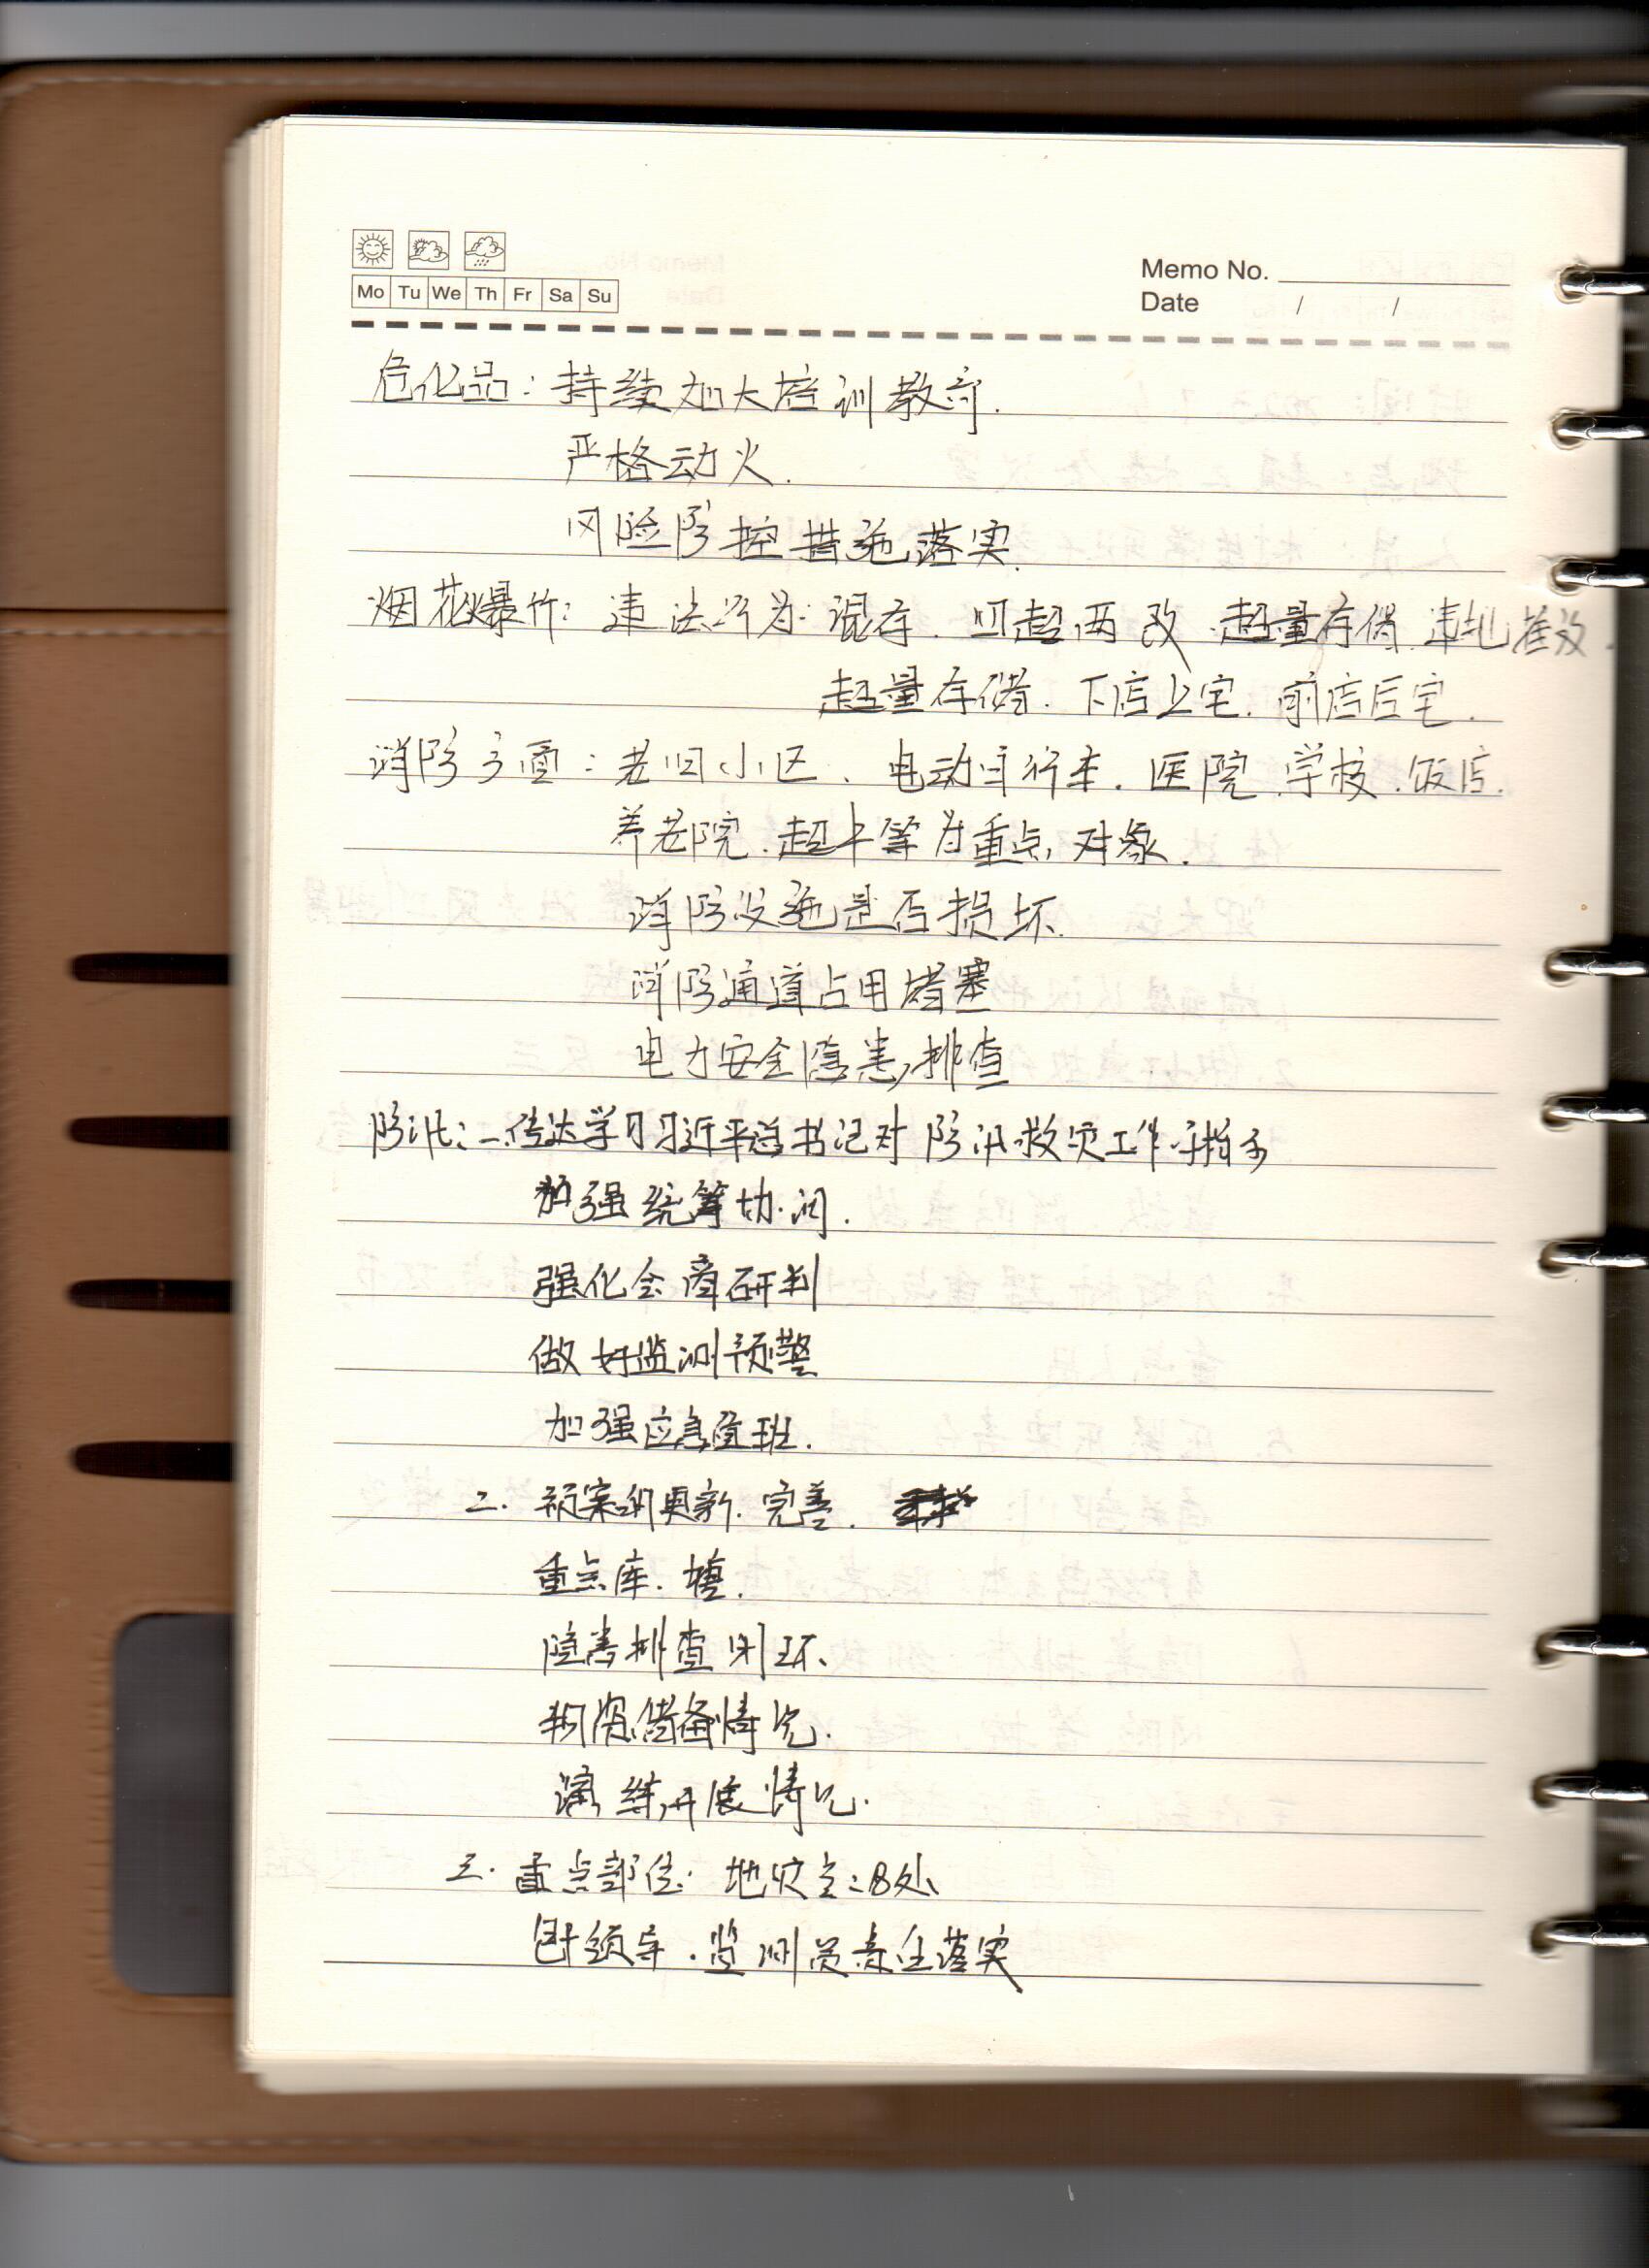 Mo Tu We Th Fr Sa Su
Memo No.
Date / /
危化品：持续加大培训教育.
严格动火.
风险防控措施落实.
烟花爆竹：违法行为：混存. 四超两改. 超量存储. 违地摆放.
超量存储. 下店上宅. 前店后宅.
消防方面：老旧小区、电动自行车. 医院. 学校. 饭店.
养老院. 超市等为重点对象.
消防设施是否损坏.
消防通道占用堵塞
电力安全隐患排查
防汛：一.传达学习习近平总书记对防汛救灾工作指示
加强统筹协调.
强化会商研判
做好监测预警
加强应急值班.
二. 预案的更新. 完善.
重点库. 塘.
隐患排查闭环.
物资储备情况.
演练开展情况.
三. 重点部位. 地灾点：8处
包村领导. 监测员责任落实